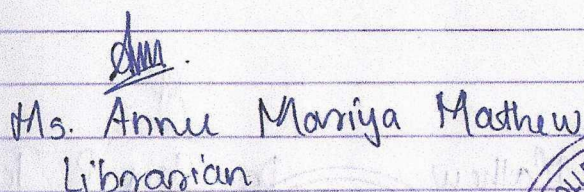 Ms. Annu Mariya Mathew
Librarian